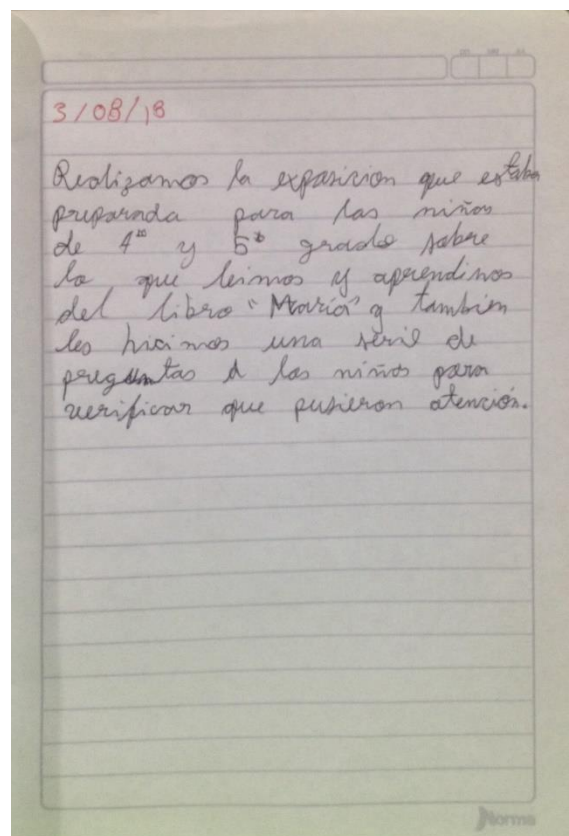 3/08/18
Realizamos la exposicion que estaba
preparada para los niños
de 4to y 5to grado sobre
lo que leimos y aprendimos
del libro "María" y tambien
les hicimos una serie de
preguntas a los niños para
verificar que pusieron atención.
Norma